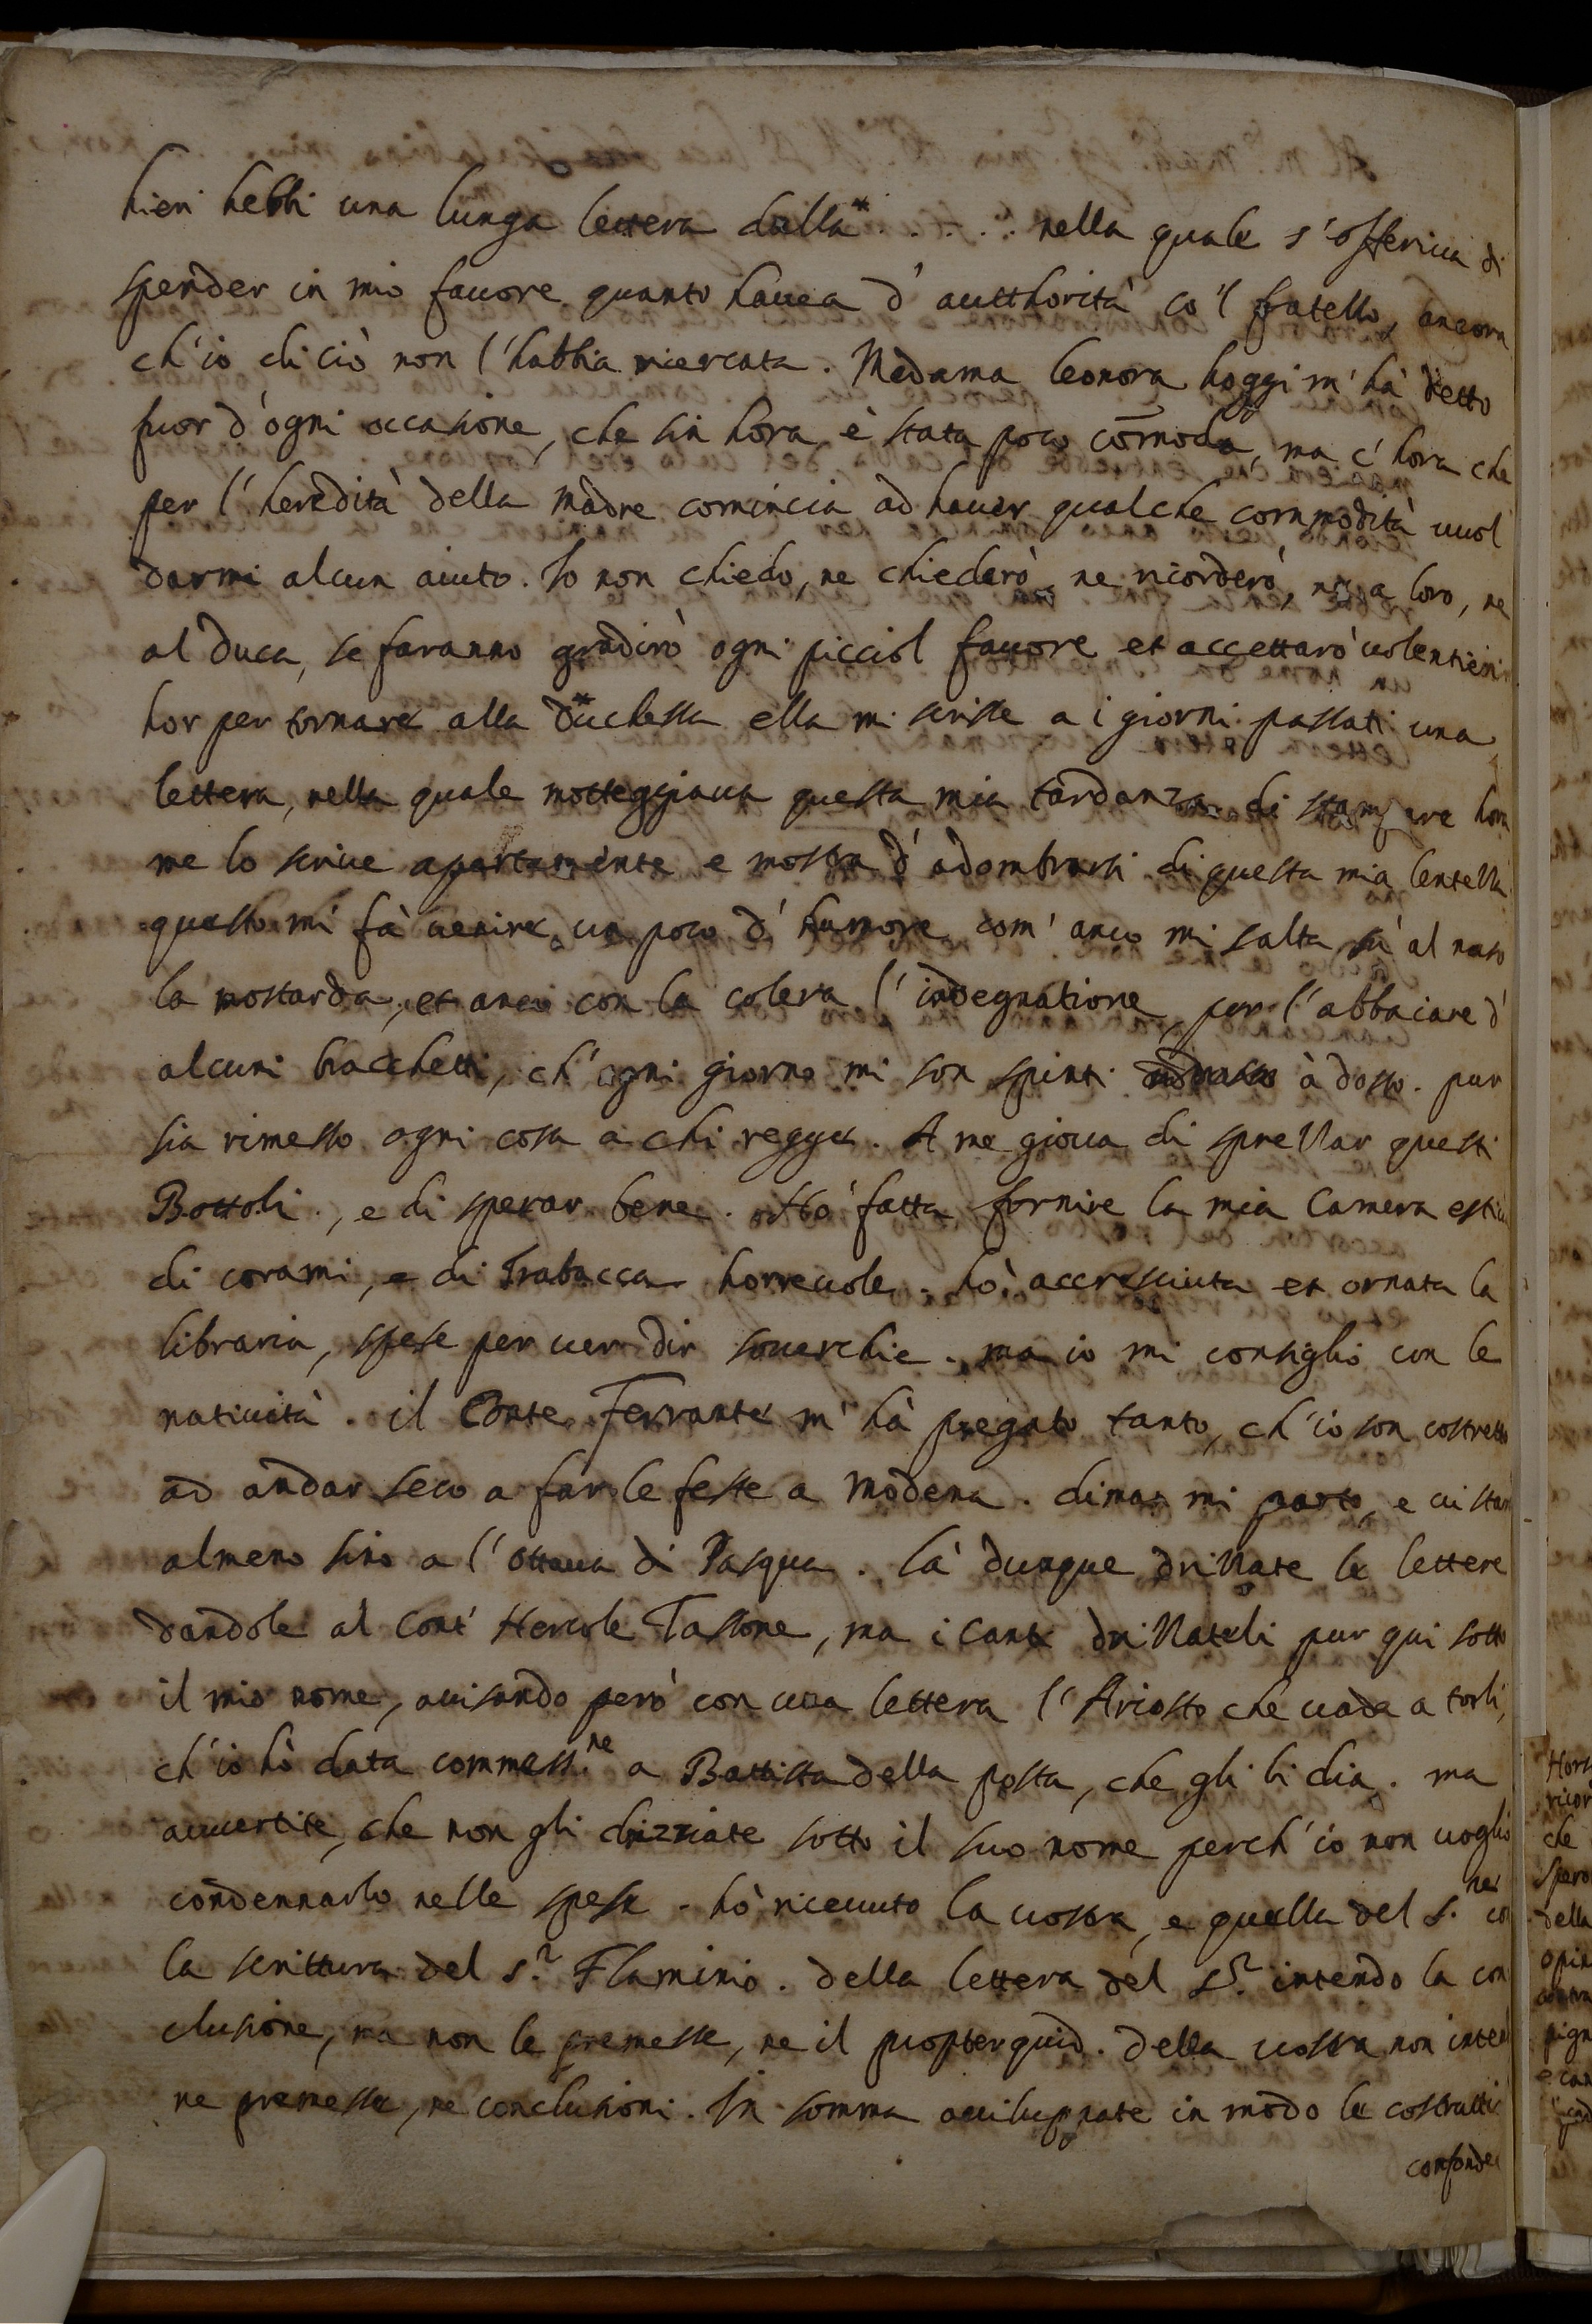 hieri hebbi una lunga lettera dalla* . . . . nella quale s'offeriua di
spender in mio fauore quanto hauea d'autthorità co'l fratello, ancora
ch'io di ciò non l'habbia ricercata. Madama leonora hoggi m'hà detto
fuor d'ogni occasione, che sin hora è stata poco cōmoda, ma c'hora che
per l'heredità della madre comincia ad hauer qualche commodità uuol
darmi alcun aiuto. Io non chiedo, ne chiederò, ne ricorderò, ne a loro, ne
al duca, se faranno gradirò ogni picciol fauore et accettarò uolentieri
hor per tornare alla duchessa ella mi scrisse a i giorni passati una
lettera, nella quale motteggiaua questa mia tardanza di stampare hora
me lo scriue apertamente e mostra d'adombrarsi di questa mia lentezza
questo mi fà uenire un poco d'humore com'anco mi salta sù al naso
la mostarda, et anco con la colera l'indegnatione per l'abbaiare d'
alcuni bracchetti, ch'ogni giorno mi son spinti à dosso. pur
sia rimesso ogni cosa a chi regge. A me gioua di sprezzar questi
Bottoli, e di sperar bene. Hò fatta fornire la mia Camera estiua
di corami, e di Trabacca horreuole. hò accresciuta et ornata la
libraria, spese per uer dir souerchie. ma io mi consiglio con le
natiuità. il Conte Ferrante m'hà pregato tanto, ch'io son costretto
ad andar seco a far le feste a Modena. diman mi parto, e ui starò
almeno sino a l'ottaua di Pasqua. là dunque drizzate le lettere
dandole al Cont'Hercole Tassone, ma i canti drizzateli pur qui sotto
il mio nome, auisando però con una lettera l'Ariosto che uada a torli,
ch'io hò data commess.ne a Battista della posta, che gli li dia. ma
auuertite, che non gli drizziate sotto il suo nome perch'io non uoglio
condennarlo nelle spese. hò riceuuto la uostra, e quella del S.re co
la scrittura del s.r Flaminio. della lettera del S.r intendo la con
clusione, ma non le premesse, ne il propterquid. della uostra non inten
ne premesse, ne conclusioni. In somma auiluppate in modo le costrutti
confonde